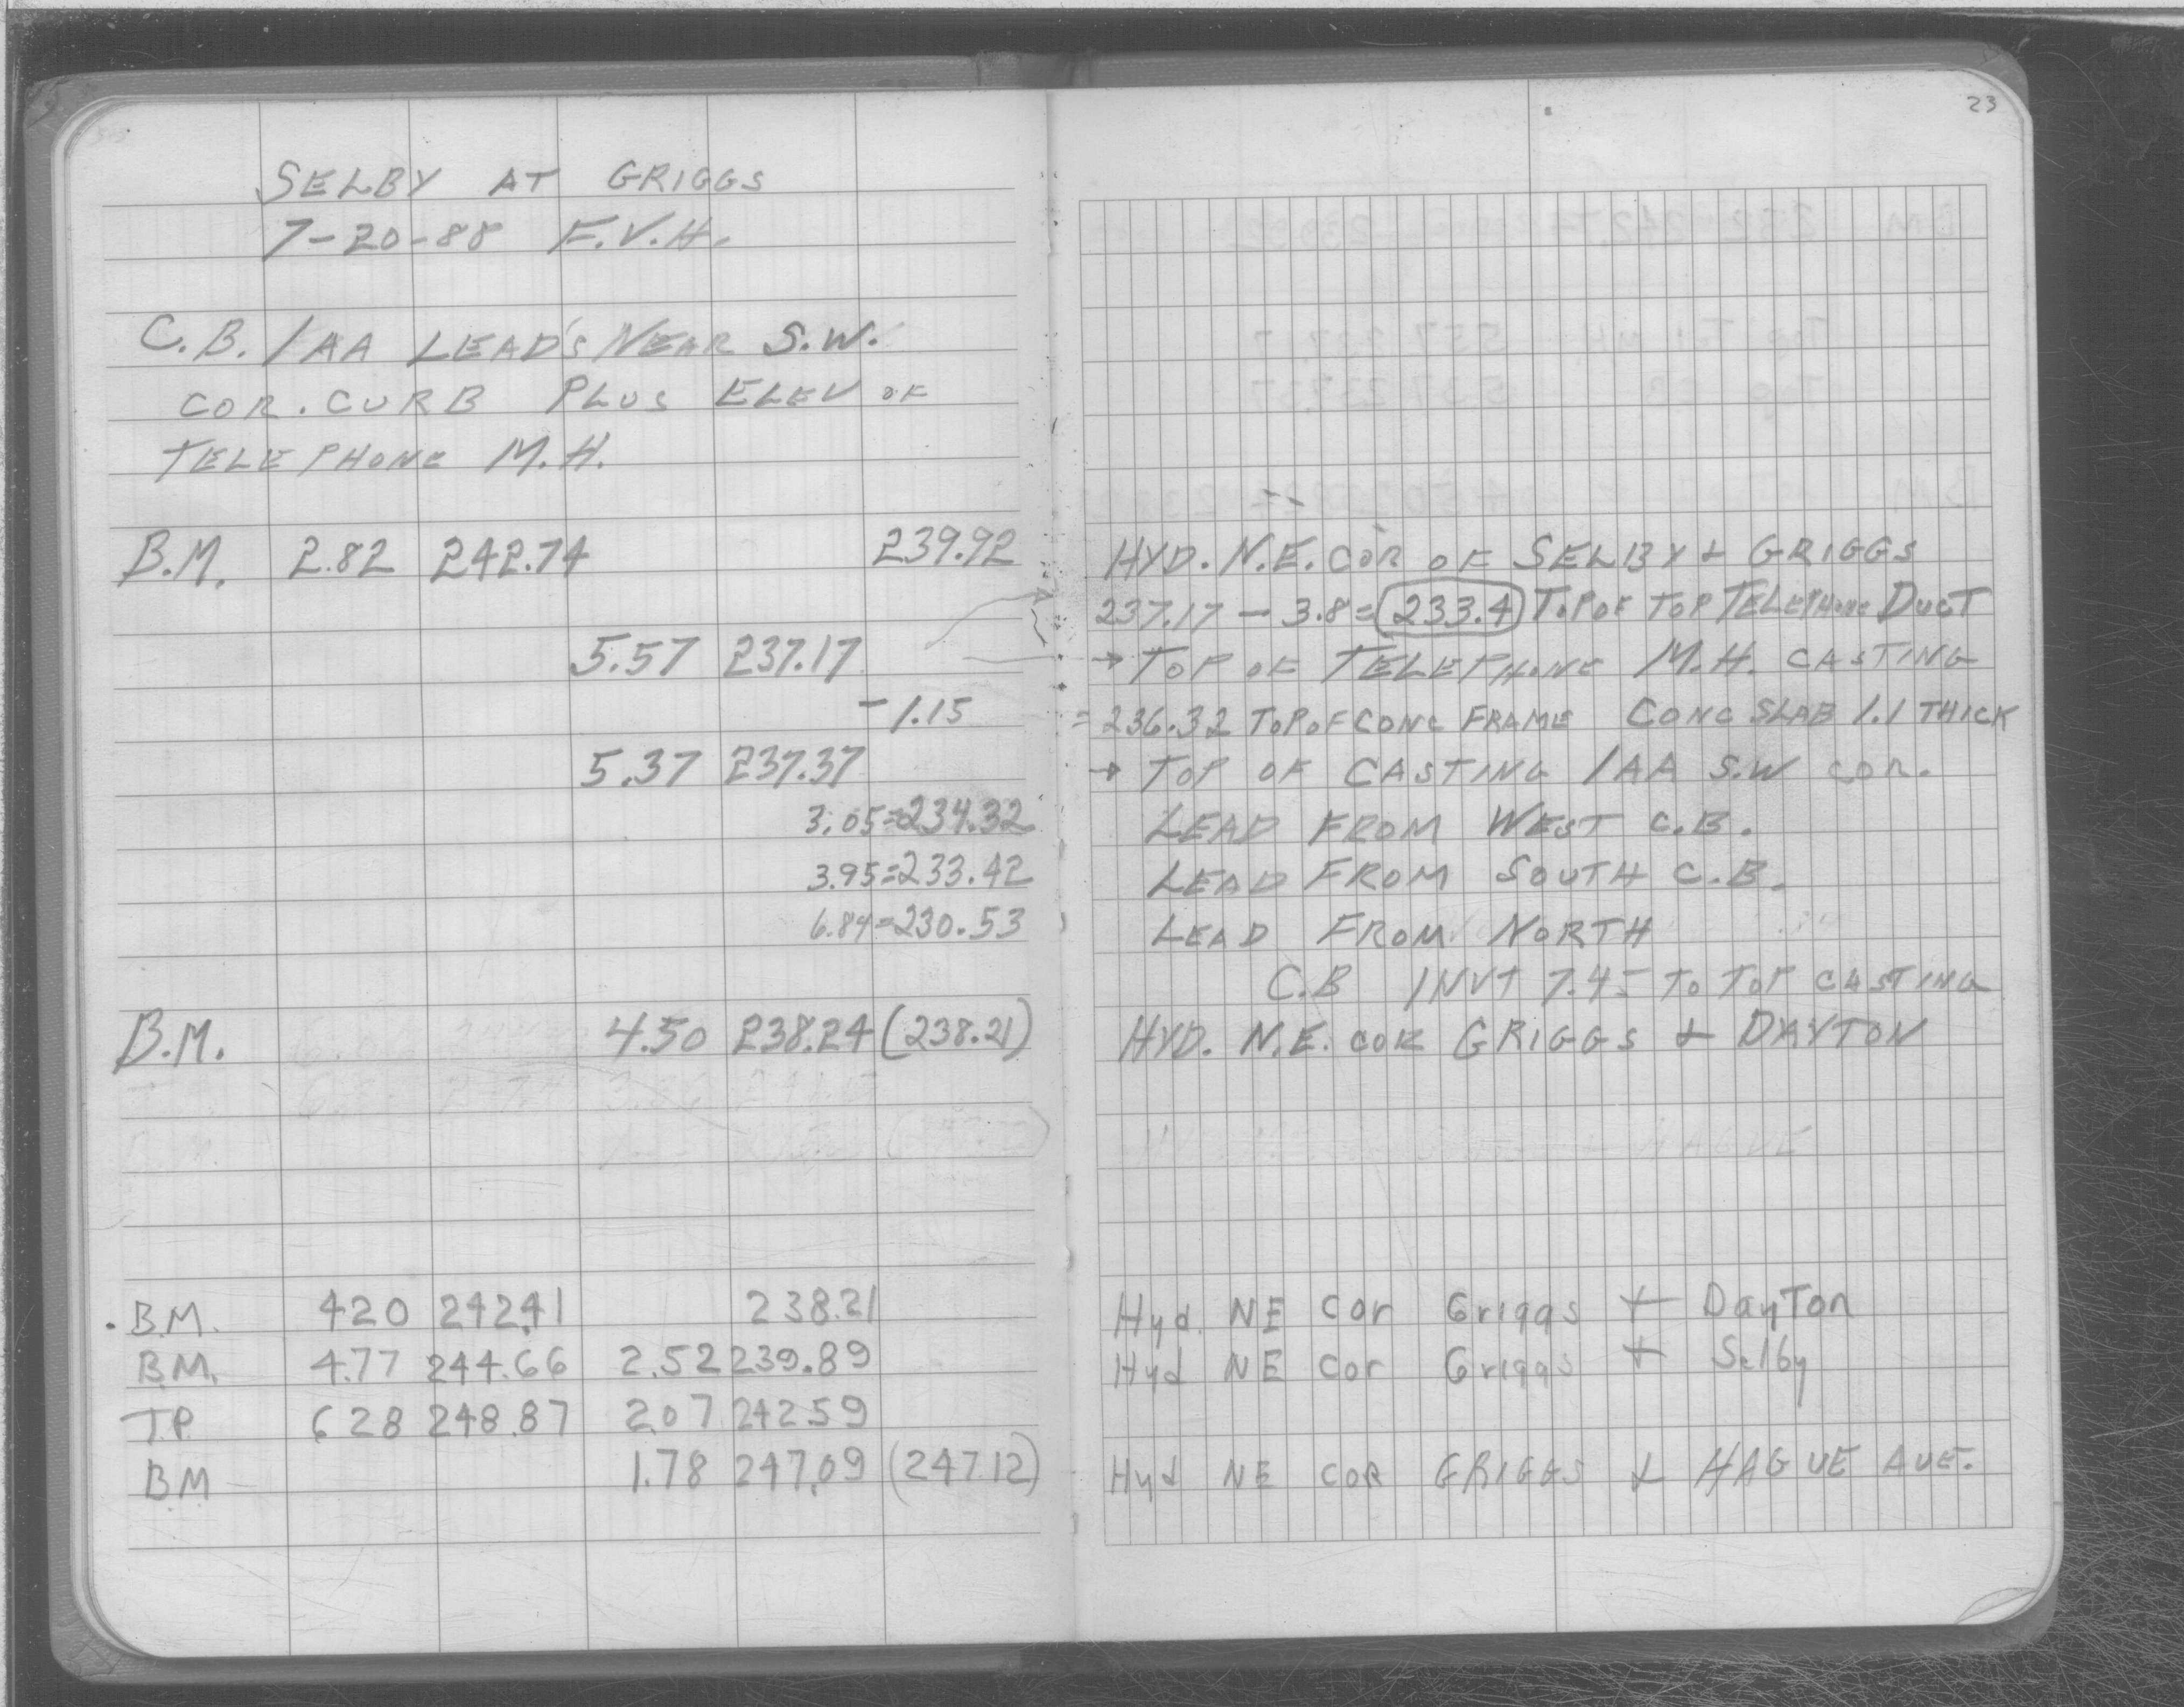 23
SELBY AT GRIGGS
7-20-88 F.V.H.
C.B. 1AA LEAD'S NEAR S.W.
COR. CURB PLUS ELEV OF
TELEPHONE M.H.
B.M. 2.82 242.74 239.92 HYD. N.E. COR OF SELBY & GRIGGS
237.17 - 3.8 = 233.4 TOP OF TOP TELEPHONE DUCT
5.57 237.17 → TOP OF TELEPHONE M.H. CASTING
- 1.15 = 236.32 TOP OF CONC FRAME CONC SLAB 1.1 THICK
5.37 237.37 → TOP OF CASTING 1AA S.W COR.
3.05 = 234.32 LEAD FROM WEST C.B.
3.95 = 233.42 LEAD FROM SOUTH C.B.
6.84 = 230.53 LEAD FROM NORTH
C.B INVT 7.45 TO TOP CASTING
B.M. 4.50 238.24 (238.21) HYD. N.E. COR GRIGGS & DAYTON
HAGUE
B.M. 420 242.41 238.21 Hyd. NE Cor Griggs + DayTon
B.M. 4.77 244.66 2.52 239.89 Hyd NE Cor Griggs + Selby
T.P. 628 248.87 2.07 242 59
BM 1.78 247.09 (247.12) Hyd NE COR GRIGGS & HAGUE AVE.